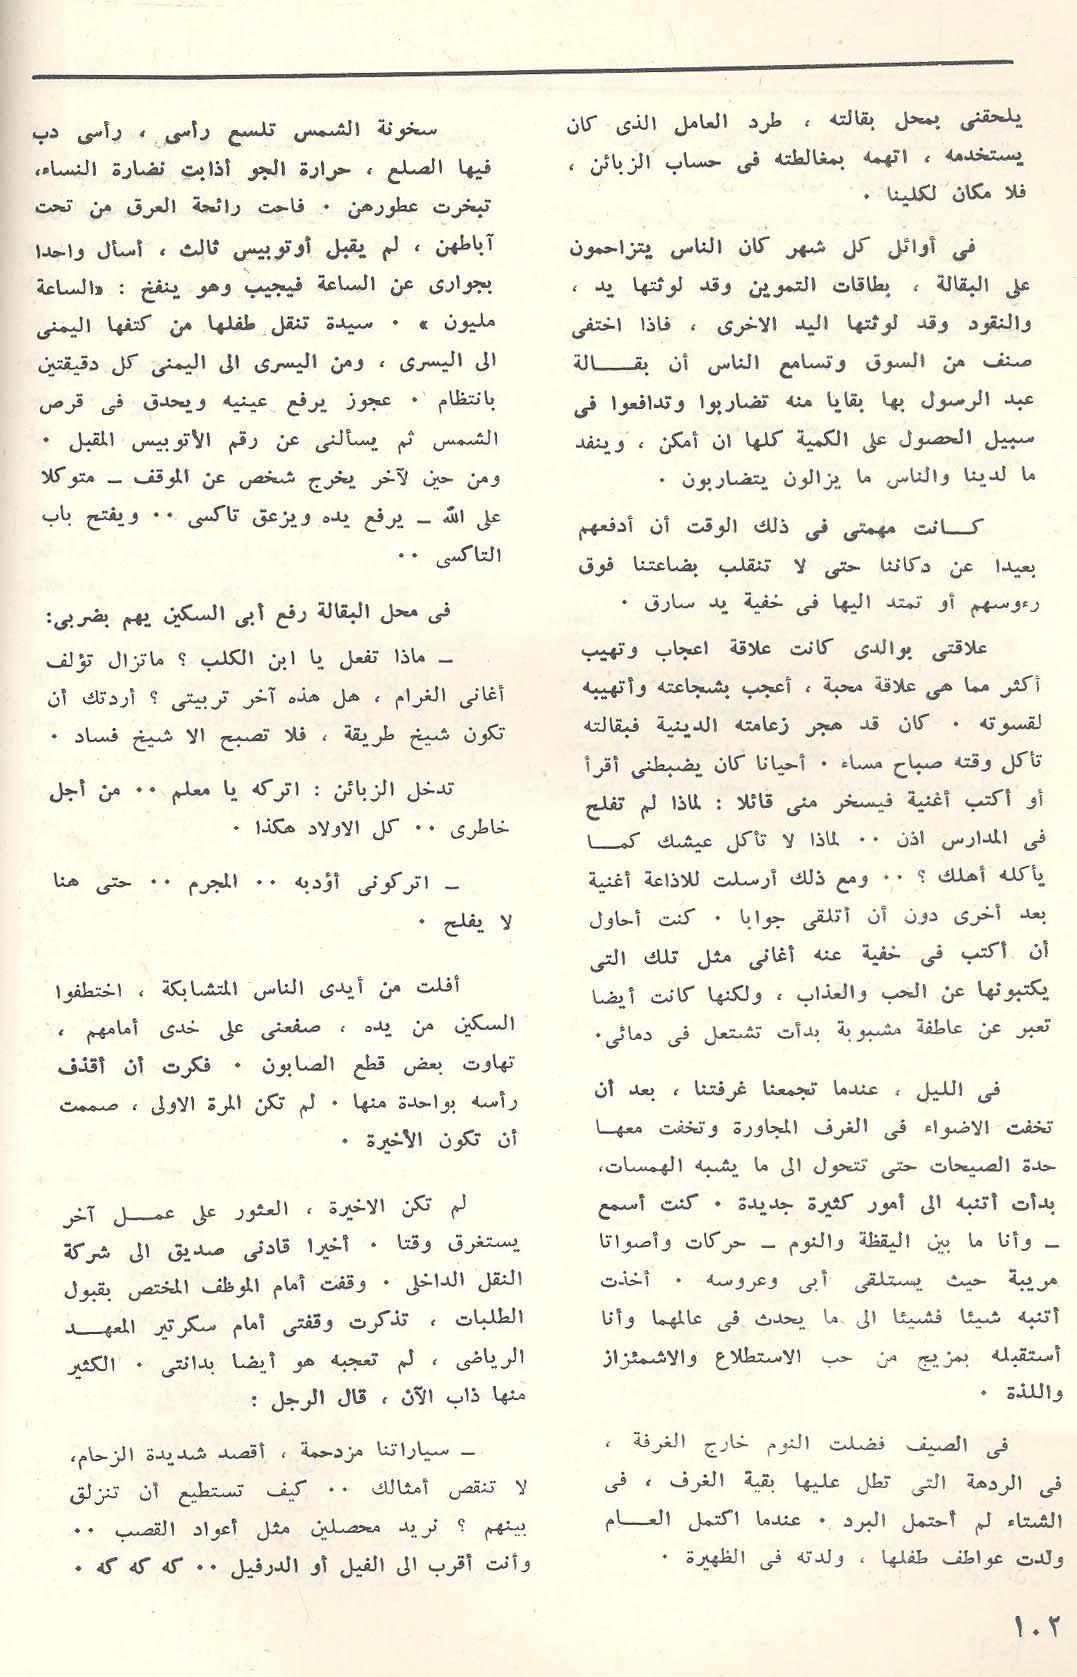 يلحقنى بمحل بقالته ، طرد العامل الذى كان
يستخدمه ، اتهمه بمغالطته فى حساب الزبائن ،
فلا مكان لكلينا ٠
فى أوائل كل شهر كان الناس يتزاحمون
على البقالة ، بطاقات التموين وقد لوثتها يد ،
والنقود وقد لوثتها اليد الاخرى ، فاذا اختفى
صنف من السوق وتسامع الناس أن بقـــالة
عبد الرسول بها بقايا منه تضاربوا وتدافعوا فى
سبيل الحصول على الكمية كلها ان أمكن ، وينفد
ما لدينا والناس ما يزالون يتضاربون ٠
كـــانت مهمتى فى ذلك الوقت أن أدفعهم
بعيدا عن دكاننا حتى لا تنقلب بضاعتنا فوق
رءوسهم أو تمتد اليها فى خفية يد سارق ٠
علاقتى بوالدى كانت علاقة اعجاب وتهيب
أكثر مما هى علاقة محبة ، أعجب بشجاعته وأتهيبه
لقسوته ٠ كان قد هجر زعامته الدينية فبقالته
تأكل وقته صباح مساء ٠ أحيانا كان يضبطنى أقرأ
أو أكتب أغنية فيسخر منى قائلا : لماذا لم تفلح
فى المدارس اذن ٠٠ لماذا لا تأكل عيشك كمـــا
يأكله أهلك ؟ ٠٠ ومع ذلك أرسلت للاذاعة أغنية
بعد أخرى دون أن أتلقى جوابا ٠ كنت أحاول
أن أكتب فى خفية عنه أغانى مثل تلك التى
يكتبونها عن الحب والعذاب ، ولكنها كانت أيضا
تعبر عن عاطفة مشبوبة بدأت تشتعل فى دمائى٠
فى الليل ، عندما تجمعنا غرفتنا ، بعد أن
تخفت الاضواء فى الغرف المجاورة وتخفت معهـا
حدة الصيحات حتى تتحول الى ما يشبه الهمسات،
بدأت أتنبه الى أمور كثيرة جديدة ٠ كنت أسمع
ـ وأنا ما بين اليقظة والنوم ـ حركات وأصواتا
مريبة حيث يستلقى أبى وعروسه ٠ أخذت
أتنبه شيئا فشيئا الى ما يحدث فى عالمهما وأنا
أستقبله بمزيج من حب الاستطلاع والاشمئزاز
واللذة ٠
فى الصيف فضلت النوم خارج الغرفة ،
فى الردهة التى تطل عليها بقية الغرف ، فى
الشتاء لم أحتمل البرد ٠ عندما اكتمل العـــام
ولدت عواطف طفلها ، ولدته فى الظهيرة ٠
سخونة الشمس تلسع رأسى ، رأسى دب
فيها الصلع ، حرارة الجو أذابت نضارة النساء،
تبخرت عطورهن ٠ فاحت رائحة العرق من تحت
آباطهن ، لم يقبل أوتوبيس ثالث ، أسأل واحدا
بجوارى عن الساعة فيجيب وهو ينفخ : «الساعة
مليون » ٠ سيدة تنقل طفلها من كتفها اليمنى
الى اليسرى ، ومن اليسرى الى اليمنى كل دقيقتين
بانتظام ٠ عجوز يرفع عينيه ويحدق فى قرص
الشمس ثم يسألنى عن رقم الأتوبيس المقبل ٠
ومن حين لآخر يخرج شخص عن الموقف ـ متوكلا
على الله ـ يرفع يده ويزعق تاكسى ٠٠ ويفتح باب
التاكسى ٠٠
فى محل البقالة رفع أبى السكين يهم بضربى:
ـ ماذا تفعل يا ابن الكلب ؟ ماتزال تؤلف
أغانى الغرام ، هل هذه آخر تربيتى ؟ أردتك أن
تكون شيخ طريقة ، فلا تصبح الا شيخ فساد ٠
تدخل الزبائن : اتركه يا معلم ٠٠ من أجل
خاطرى ٠٠ كل الاولاد هكذا ٠
ـ اتركونى أؤدبه ٠٠ المجرم ٠٠ حتى هنا
لا يفلح ٠
أفلت من أيدى الناس المتشابكة ، اختطفوا
السكين من يده ، صفعنى على خدى أمامهم ،
تهاوت بعض قطع الصابون ٠ فكرت أن أقذف
رأسه بواحدة منها ٠ لم تكن المرة الاولى ، صممت
أن تكون الأخيرة ٠
لم تكن الاخيرة ، العثور على عمـــل آخر
يستغرق وقتا ٠ أخيرا قادنى صديق الى شركة
النقل الداخلى ٠ وقفت أمام الموظف المختص بقبول
الطلبات ، تذكرت وقفتى أمام سكرتير المعهـــد
الرياضى ، لم تعجبه هو أيضا بدانتى ٠ الكثير
منها ذاب الآن ، قال الرجل :
ـ سياراتنا مزدحمة ، أقصد شديدة الزحام،
لا تنقص أمثالك ٠٠ كيف تستطيع أن تنزلق
بينهم ؟ نريد محصلين مثل أعواد القصب ٠٠
وأنت أقرب الى الفيل أو الدرفيل ٠٠ كه كه كه ٠
١٠٢